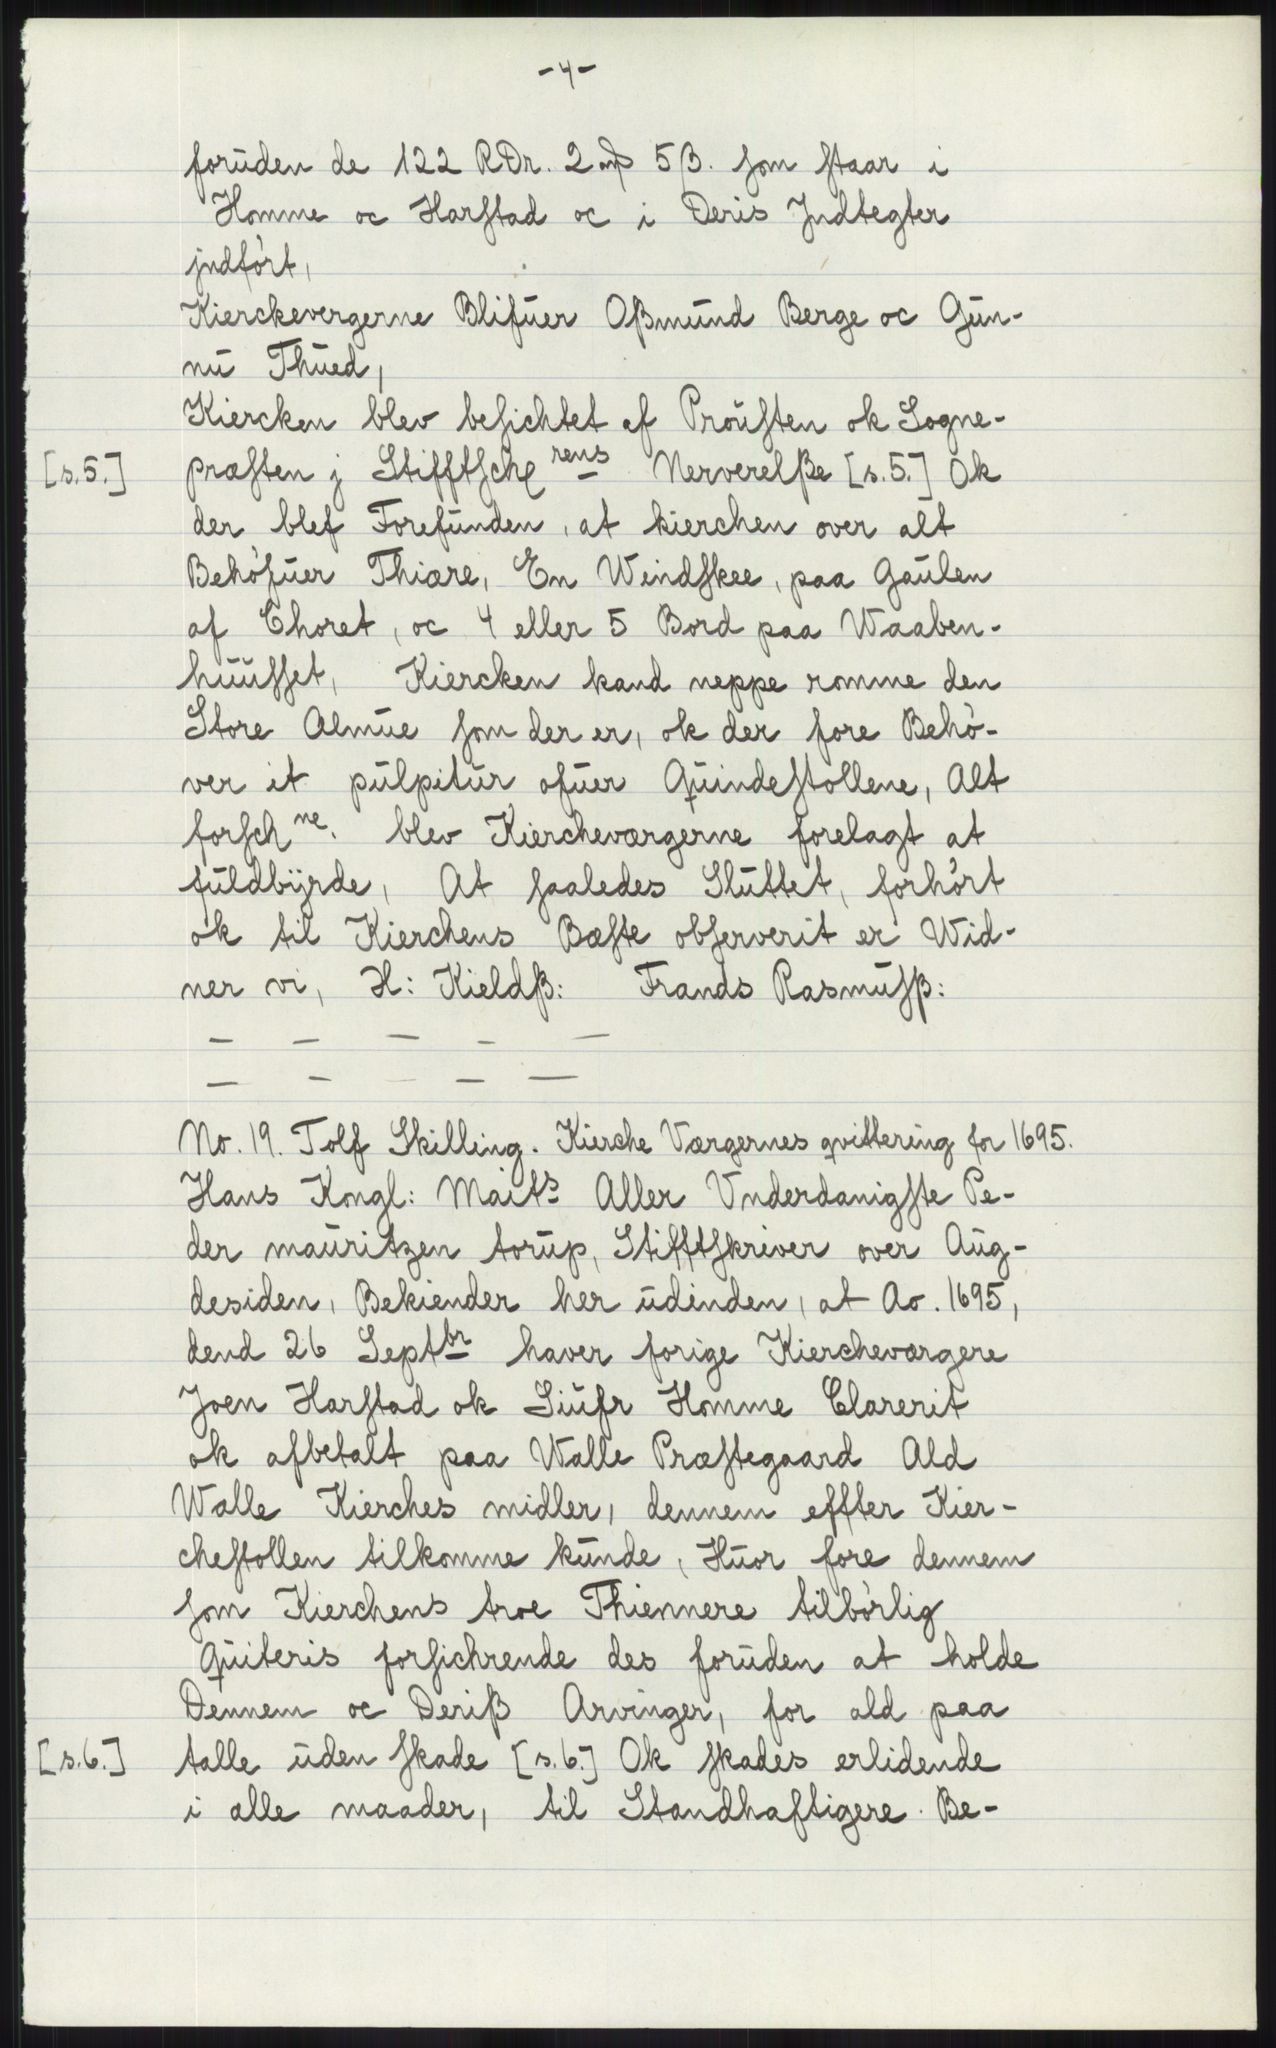 -4-
forūden de 122 RDr. 2 mƺ 5 β. ſom ſtaar i
Homme oc Harſtad oc i Deris Jndtegter
jndført,
Kierckevergerne Blifūer Oßmūnd Berge oc Gūn-
nū Thūed,
Kiercken blev beſichtet af Proūſten ok Sogne-
[s.5.] præſten j Stifftſchrens Nerverelße [s.5.] Ok
der blef Forefūnden, at kierchen over alt
Behøfūer Thiære, En Windſkee, paa Gaūlen
af Choret, oc 4 eller 5 Bord paa Waaben-
hūūſſet, Kiercken kand neppe romme den
Store Almūe ſom der er, ok der fore Behø-
ver it pūlpitūr ofūer Qūindeſtollene, Alt
forſchne. blev Kiercheværgerne forelagt at
fūldbÿrde, At ſaaledes Slūttet, forhørt
ok til Kierchens Bæſte obſerverit er Wid-
ner vi, H: Kieldß: Frands Rasmūſß:
— — — — —
— — — — —
No. 19. Tolf Skilling. Kirche Værgernes qvittering for 1695.
Hans Kongl: Maits Aller Vnderdanigſte Pe-
der maūritzen torūp, Stifftſkriver over Aūg-
desiden, Bekiender her ūdinden, at Ao. 1695,
dend 26 Septbr haver forige Kiercheværgere
Joen Harſtad ok Siūfr Homme Clarerit
ok afbetalt paa Walle Præſtegaard Ald
Walle Kierches midler, dennem effter Kier-
cheſtollen tilkomme kūnde, Hūor fore dennem
ſom Kierchens troe Thiennere tilbørlig
Qūiteris forſichrende des forūden at holde
Dennem oc Deriß Arvinger, for ald paa
[s.6.] talle ūden ſkade [s.6.] Ok ſkades erlidende
i alle maader, til Standhaftigere Be-